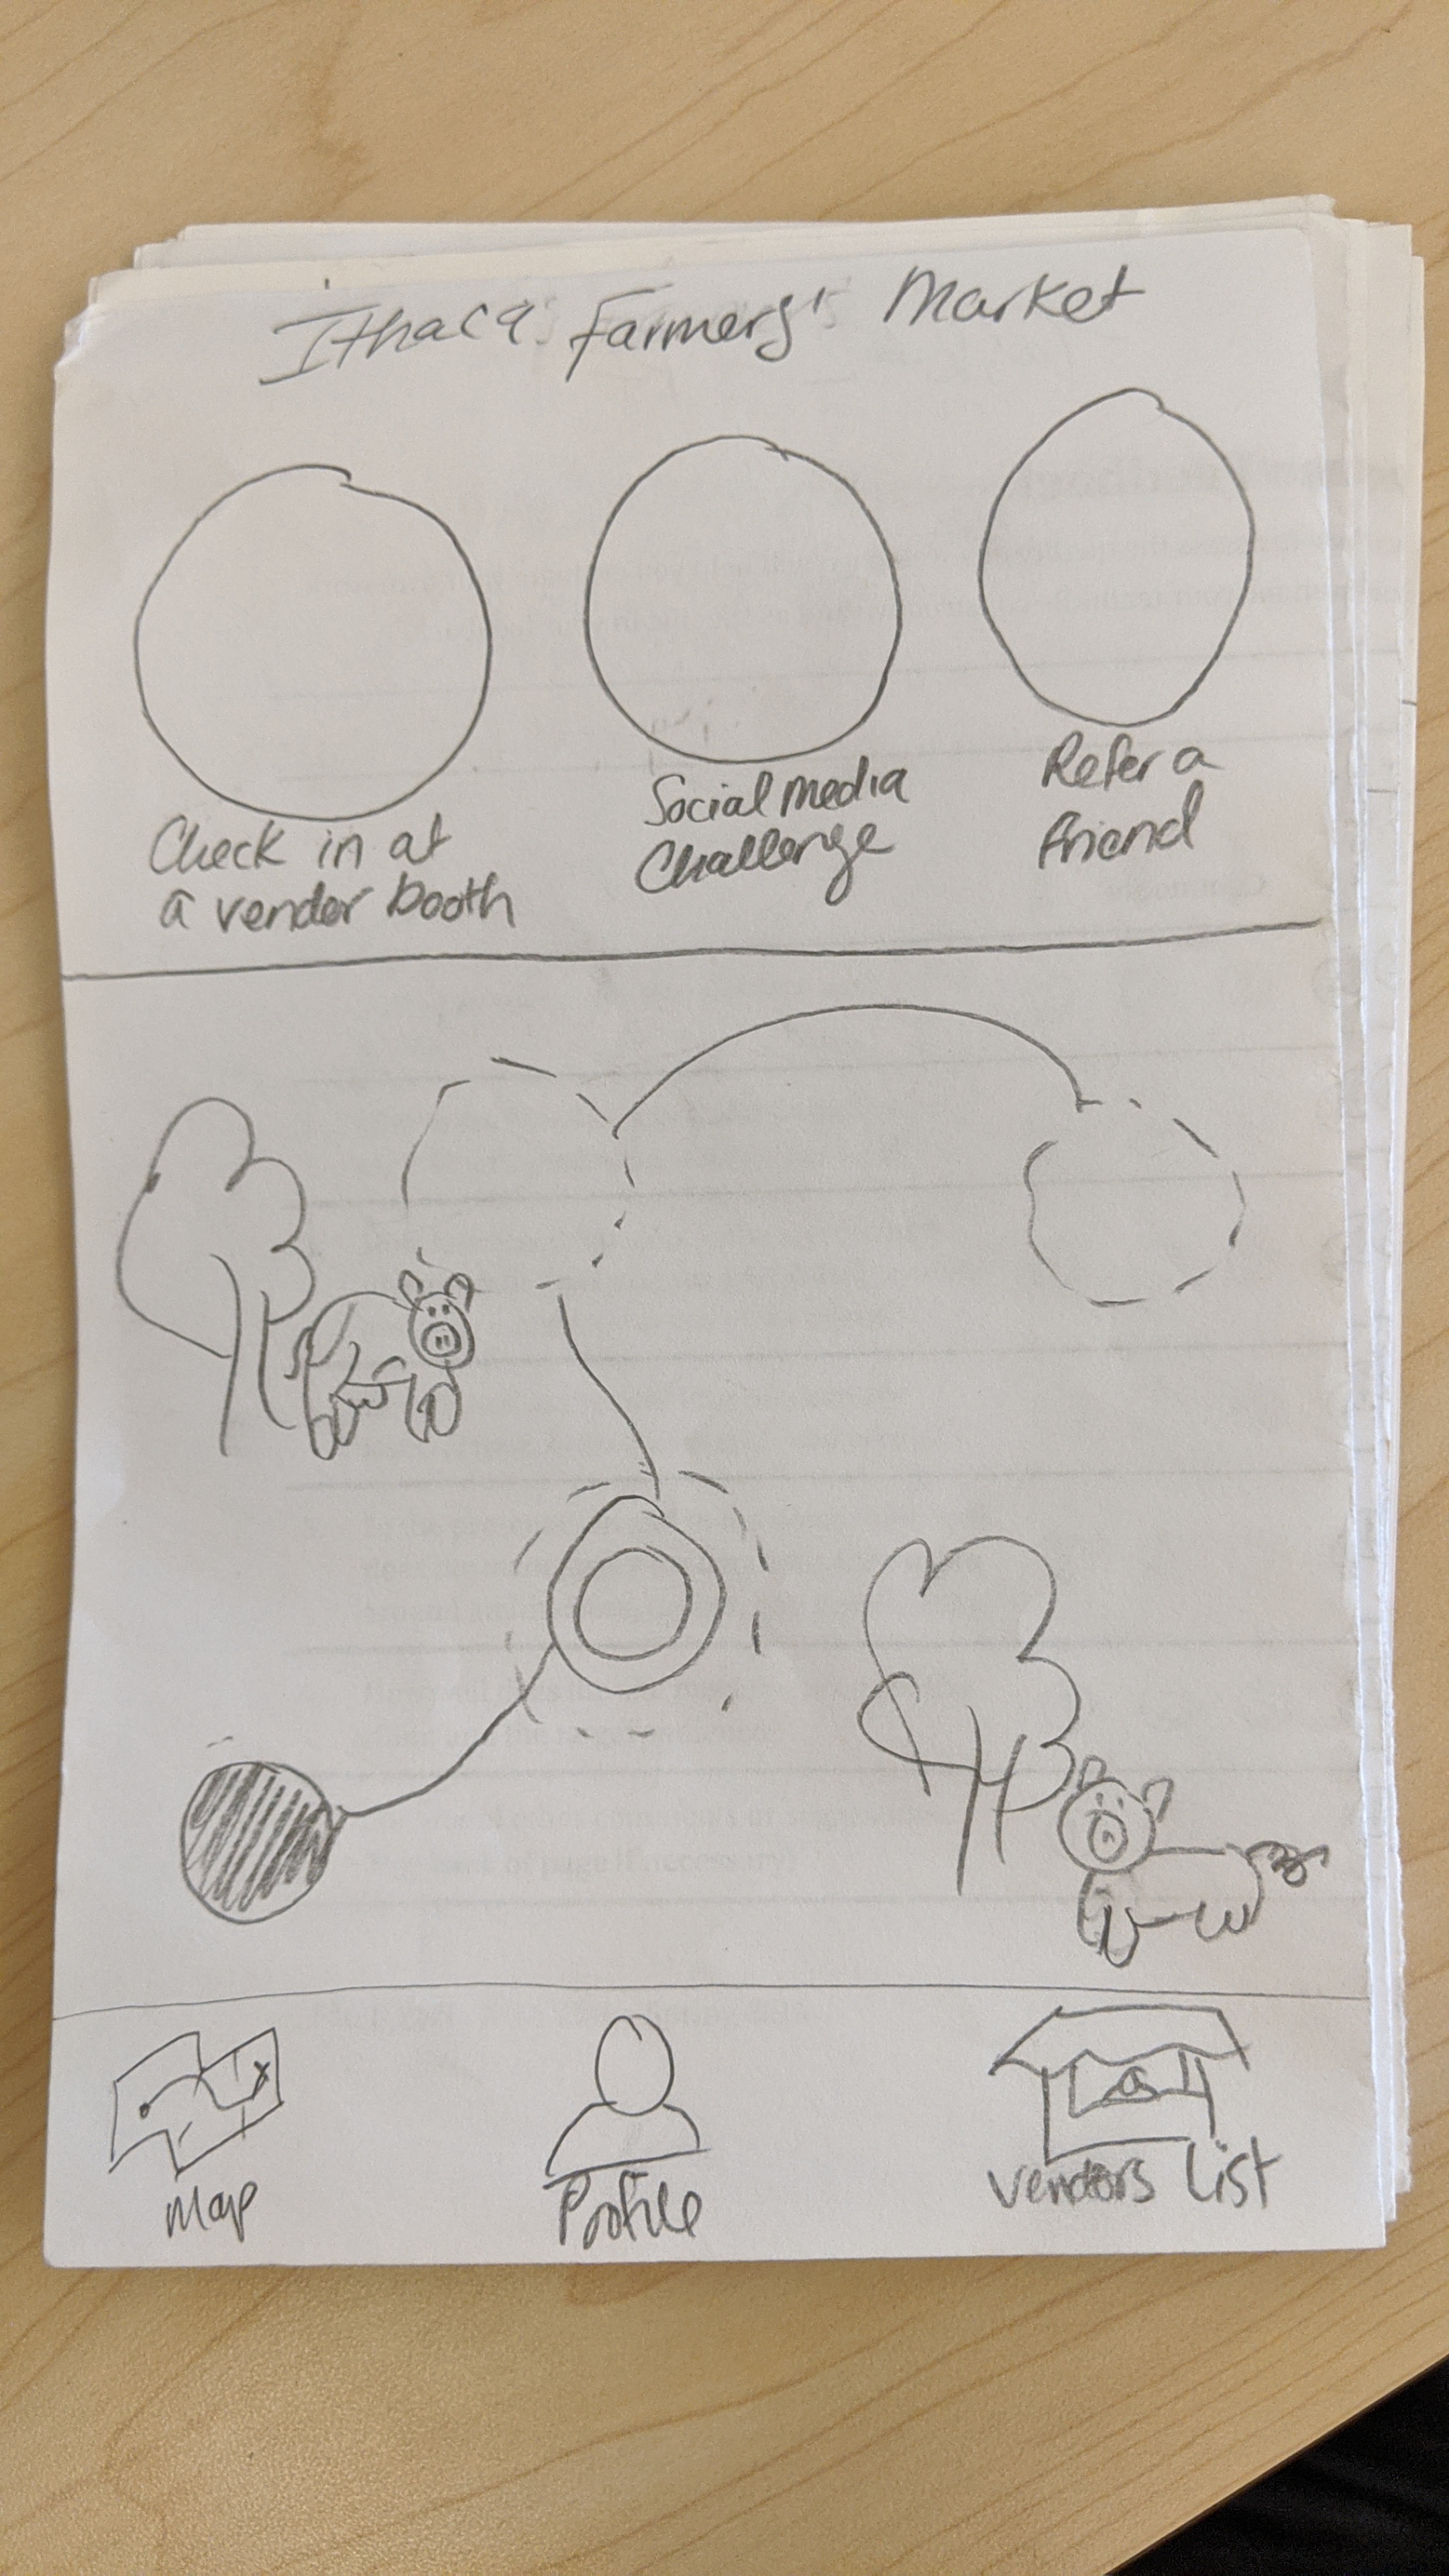 Ithaca Farmers' Market
Check in at
a vender booth
Social media
Challenge
Refer a
friend
Map
Profile
Vendors List